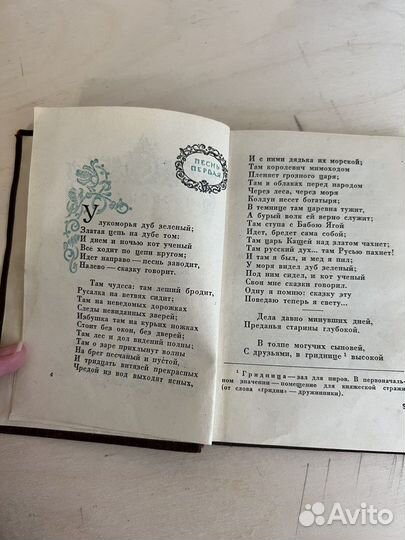 ПЕСНЬ
ПЕРВАЯ
У лукоморья дуб зеленый;
Златая цепь на дубе том:
И днем и ночью кот ученый
Все ходит по цепи кругом;
Идет направо — песнь заводит,
Налево — сказку говорит.
Там чудеса: там леший бродит,
Русалка на ветвях сидит;
Там на неведомых дорожках
Следы невиданных зверей;
Избушка там на курьих ножках
Стоит без окон, без дверей;
Там лес и дол видений полны;
Там о заре прихлынут волны
На брег песчаный и пустой,
И тридцать витязей прекрасных
Чредой из вод выходят ясных,
4
И с ними дядька их морской;
Там королевич мимоходом
Пленяет грозного царя;
Там в облаках перед народом
Через леса, через моря
Колдун несет богатыря;
В темнице там царевна тужит,
А бурый волк ей верно служит;
Там ступа с Бабою Ягой
Идет, бредет сама собой;
Там царь Кащей над златом чахнет;
Там русский дух... там Русью пахнет!
И там я был, и мед я пил;
У моря видел дуб зеленый;
Под ним сидел, и кот ученый
Свои мне сказки говорил.
Одну я помню: сказку эту
Поведаю теперь я свету...
Дела давно минувших дней,
Преданья старины глубокой.
В толпе могучих сыновей,
С друзьями, в гриднице ¹ высокой
¹ Гридница — зал для пиров. В первоначаль-
ном значении — помещение для княжеской стражи
(от слова «гридни» — дружинники).
Avito